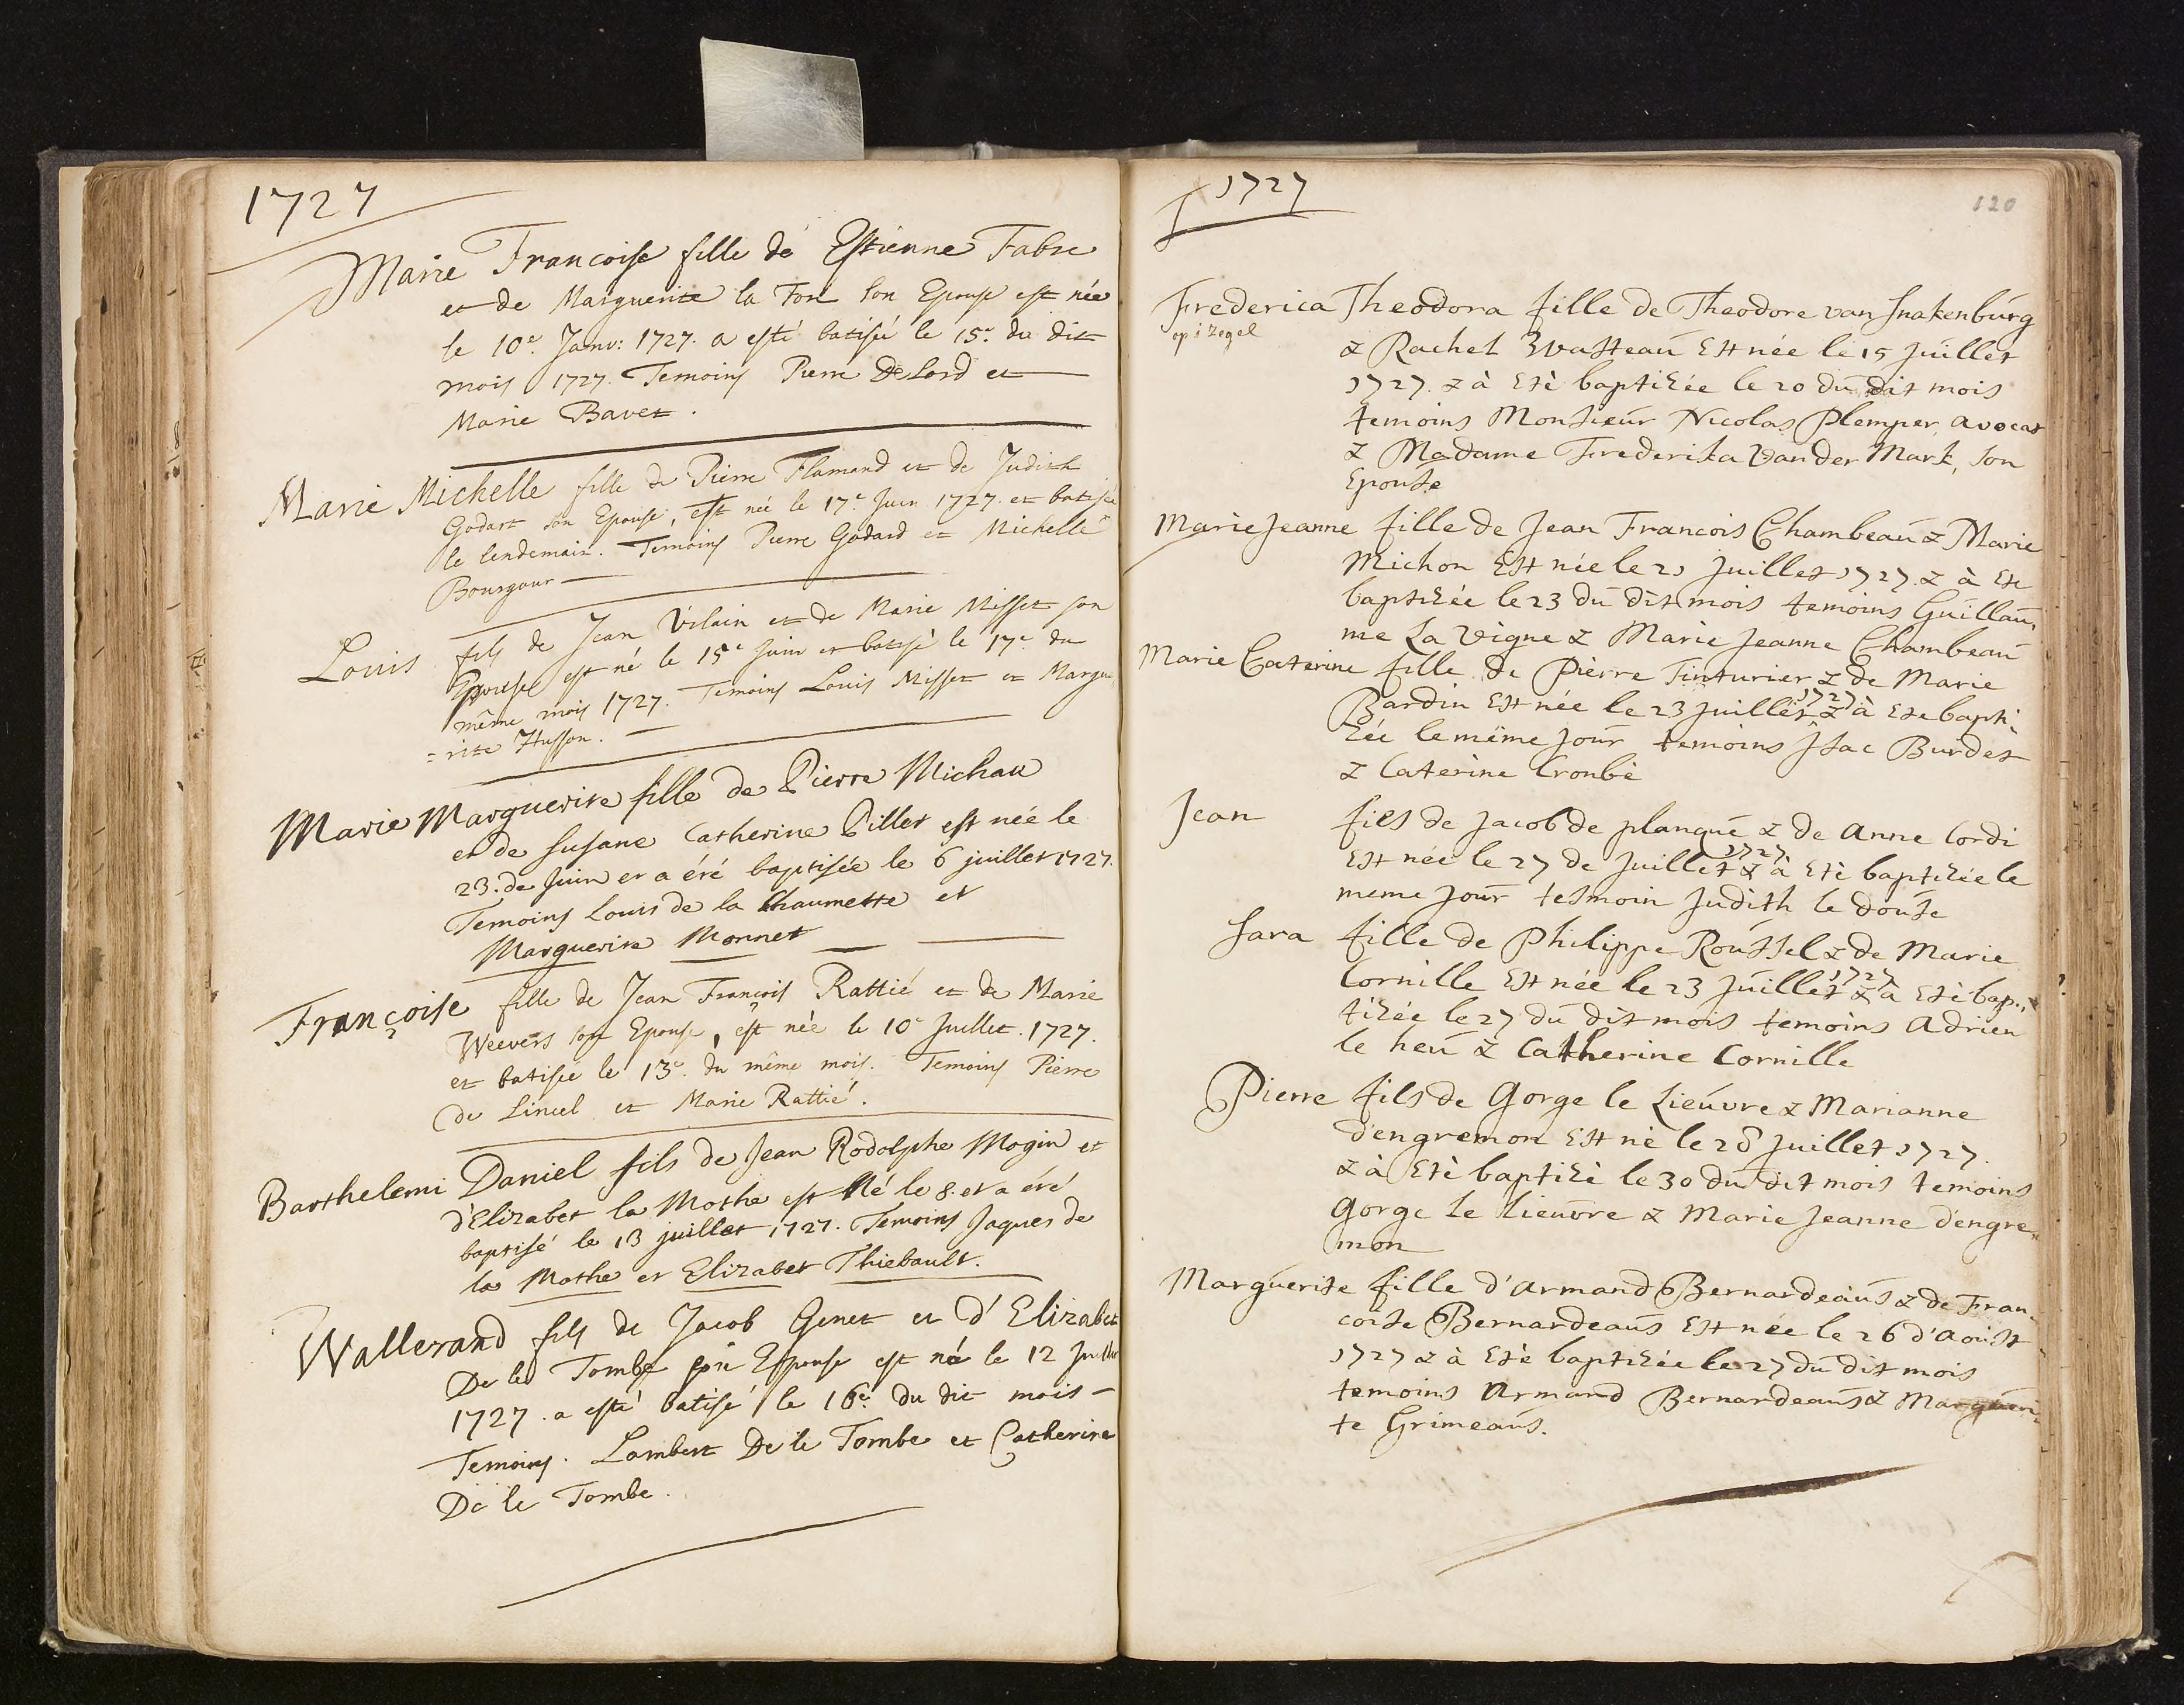 1727
Marie Francoise fille de Estienne Fabre
et de Marguerite la Font son Epouse est née
le 10e. Janv: 1727. a esté batisée le 15e. du dit
mois 1727. Temoins Pierre De Lord et
Marie Bavet.
Marie Michelle fille de Pierre Flamend et de Judith
Godart son Epouse, est née le 17e Juin 1727. et batisée
le lendemain. Temoins Pierre Godard et Michelle
Bourgour
Louis fils de Jean Vilain et de Marie Misset son
Epouse est né le 15e Juin et batisé le 17e. du
même mois 1727. Temoins Louis Misset et Margue
=rite Husson.
Marie Marguerite fille de Pierre Michau
et de Susane Catherine Pillet est née le
23. de Juin et a été baptisée le 6 juillet 1727.
Temoins Louis de la Chaumette et
Marguerite Monnet
Françoise fille de Jean François Rattié et de Marie
Weevers son Epouse, est née le 10e Juillet. 1727.
et batisée le 13e. du même mois. Temoins Pierre
de Linuel et Marie Rattié.
Barthelemi Daniel fils de Jean Rodolphe Mogin et
d'Elizabet la Mothe est Né le 8. et a été
baptisé le 13 juillet 1727. Temoins Jaques de
la Mothe et Elizabet Thiebault.
Wallerand fils de Jacob Genet et d'Elizabet
De le Tombe son Epouse est né le 12 Juillet
1727. a esté batisé le 16e. du dit mois
Temoins. Lambert De le Tombe et Catherine
De le Tombe.
1727
120
Frederica Theodora fille de Theodore van Snakenburg
op i zegel
& Rachel Evasteau Est née le 15 Juillet
1727. & à Etè baptizée le 20 du dit mois
temoins Monsieur Nicolas Plemper avocat
& Madame Frederika Van der Mark, son
Epouse
Marie Jeanne fille de Jean Francois Chambeau & Marie
Michon Est née le 21 Juillet 1727. & à Ete
baptizée le 23 du dit mois temoins Guillau,
me La Vigne & Marie Jeanne Chambeau
Marie Caterine fille de Pierre Tinturier & de Marie
1727
Bardin Est née le 23 Juillet & à Ete bapti
zée le même jour temoins Isac Burdet
& Caterine Cronbè
Jean fils de Jacob de planque & de Anne Cordi
1727
Est née le 27 de Juillet & à Etè baptizée le
meme jour tesmoin Judith le douse
Sara fille de Philippe Roussel & de Marie
1727
Cornille Est née le 23 Juillet & a Etè bap.,
tizée le 27 du dit mois temoins Adrien
le heu & Catherine Cornille
Pierre fils de Gorge le Lieuvre & Marianne
d'engremon Est nè le 28 Juillet 1727.
& à Etè baptizè le 30 du dit mois temoins
Gorge le Lieuvre & Marie Jeanne d'engre,,
mon
Marguerite fille d'armand Bernardeaus & de Fran,
coise Bernardeaus Est née le 26 d'Aoust
1727 & à Etè baptizée le 27 du dit mois
temoins Armand Bernardeaus & Margueri,
te Grimeaus.